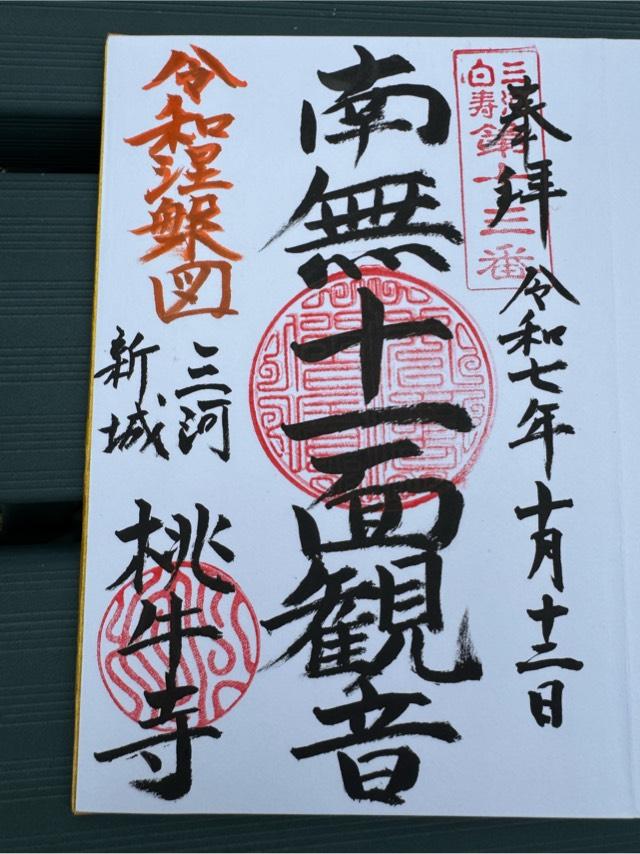 奉拝
三河
白寿
第十三番
令和七年十月十二日
南無十一面観音
令和涅槃図
三河
新城
桃牛寺